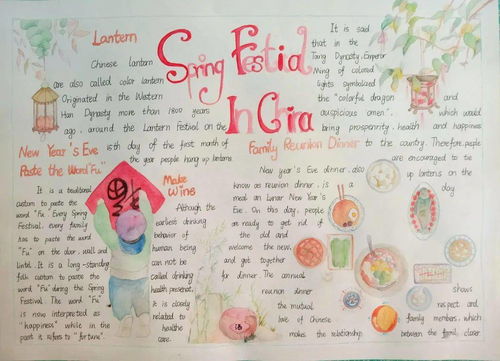 Lantern
Chinese lantern
are also called color lantern
Originated in the Western
Han Dynasty more than 1800 years
ago, around the Lantern Festival on the
15th day of the first month of
the year people hang up lanterns.
Spring Festial
In Cira
It is said
that in the
Tang Dynasty, Emperor
Ming of colored
lights symbolized
the "colorful dragon and
auspicious omen", which would
bring prosperity, health and happiness
to the country. Therefore, people
are encouraged to tie
up lanterns on the
day
New Year's Eve
Paste the Word "Fu"
It is a traditional
custom to paste the
word "Fu". Every Spring
Festival, every family
has to paste the word
"Fu" on the door, wall and
lintel. It is a long-standing
folk custom to paste the
word "Fu" during the Spring
Festival. The word "Fu"
is now interpreted as
"happiness" while in the
past it refers to "fortune".
Make
Wine
Although the
earliest drinking
behavior of
human being
can not be
called drinking
health preservat,
it is closely
related to
healthe
care.
Family Reunion Dinner
New year's Eve dinner, also
know as reunion dinner, is a
meal on Lunar New Year's
Eve. On this day, people
are ready to get rid of
the old and
welcome the new,
and get together
for dinner. The annual
reunion dinner shows
the mutual respect and
love of Chinese family members, which
makes the relationship between the family closer.